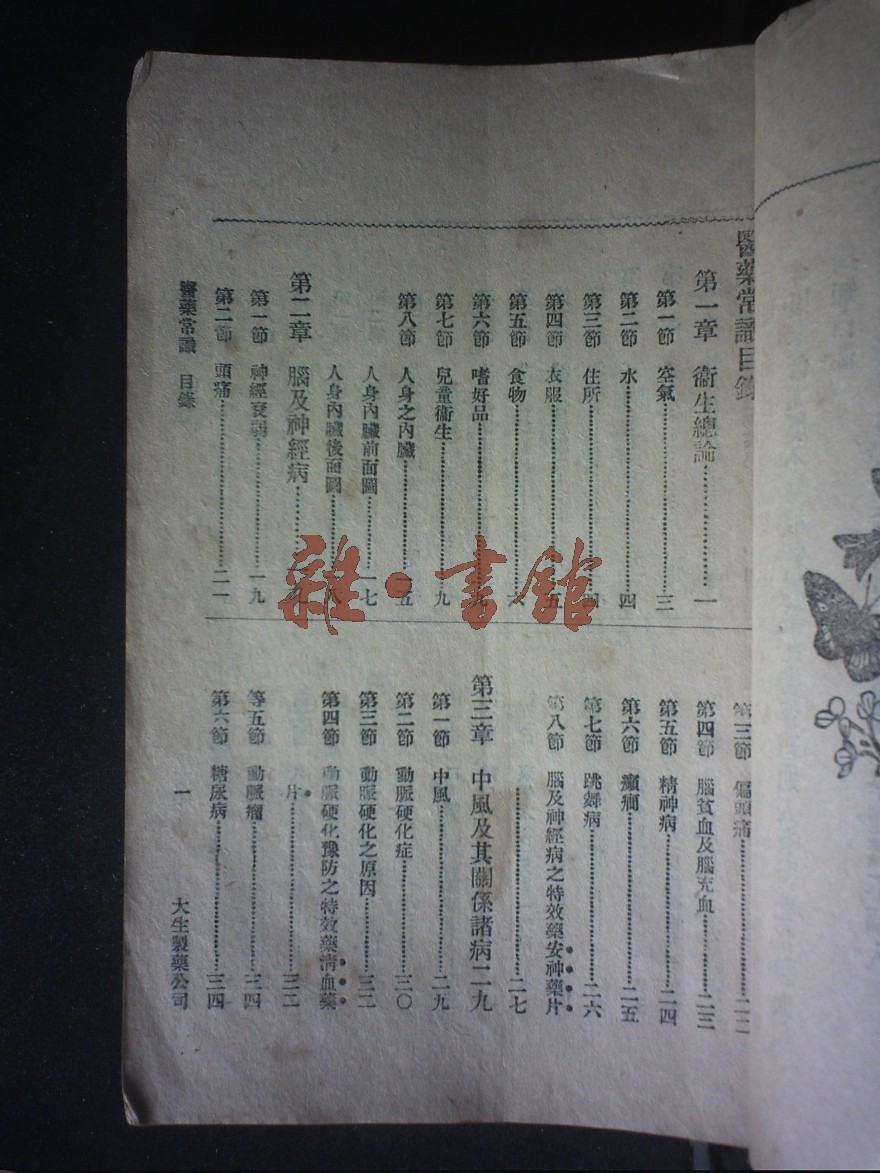 醫藥常識目錄
第一章 衞生總論……一
第一節 空氣……三
第二節 水……四
第三節 住所……四
第四節 衣服……五
第五節 食物……六
第六節 嗜好品……
第七節 兒童衞生……九
第八節 人身之內臟……五
人身內臟前面圖……一七
人身內臟後面圖……八
第二章 腦及神經病……
第一節 神經衰弱……一九
第二節 頭痛……二一
第三節 偏頭痛……二二
第四節 腦貧血及腦充血……二三
第五節 精神病……二四
第六節 癲癎……二五
第七節 跳舞病……二六
第八節 腦及神經病之特效藥安神藥片
……二七
第三章 中風及其關係諸病二九
第一節 中風……二九
第二節 動脈硬化症……三〇
第三節 動脈硬化之原因……三二
第四節 動脈硬化豫防之特效藥淸血藥
片……三二
等五節 動脈瘤……三四
第六節 糖尿病……三四
醫藥常識 目錄
一
大生製藥公司
雜·書館